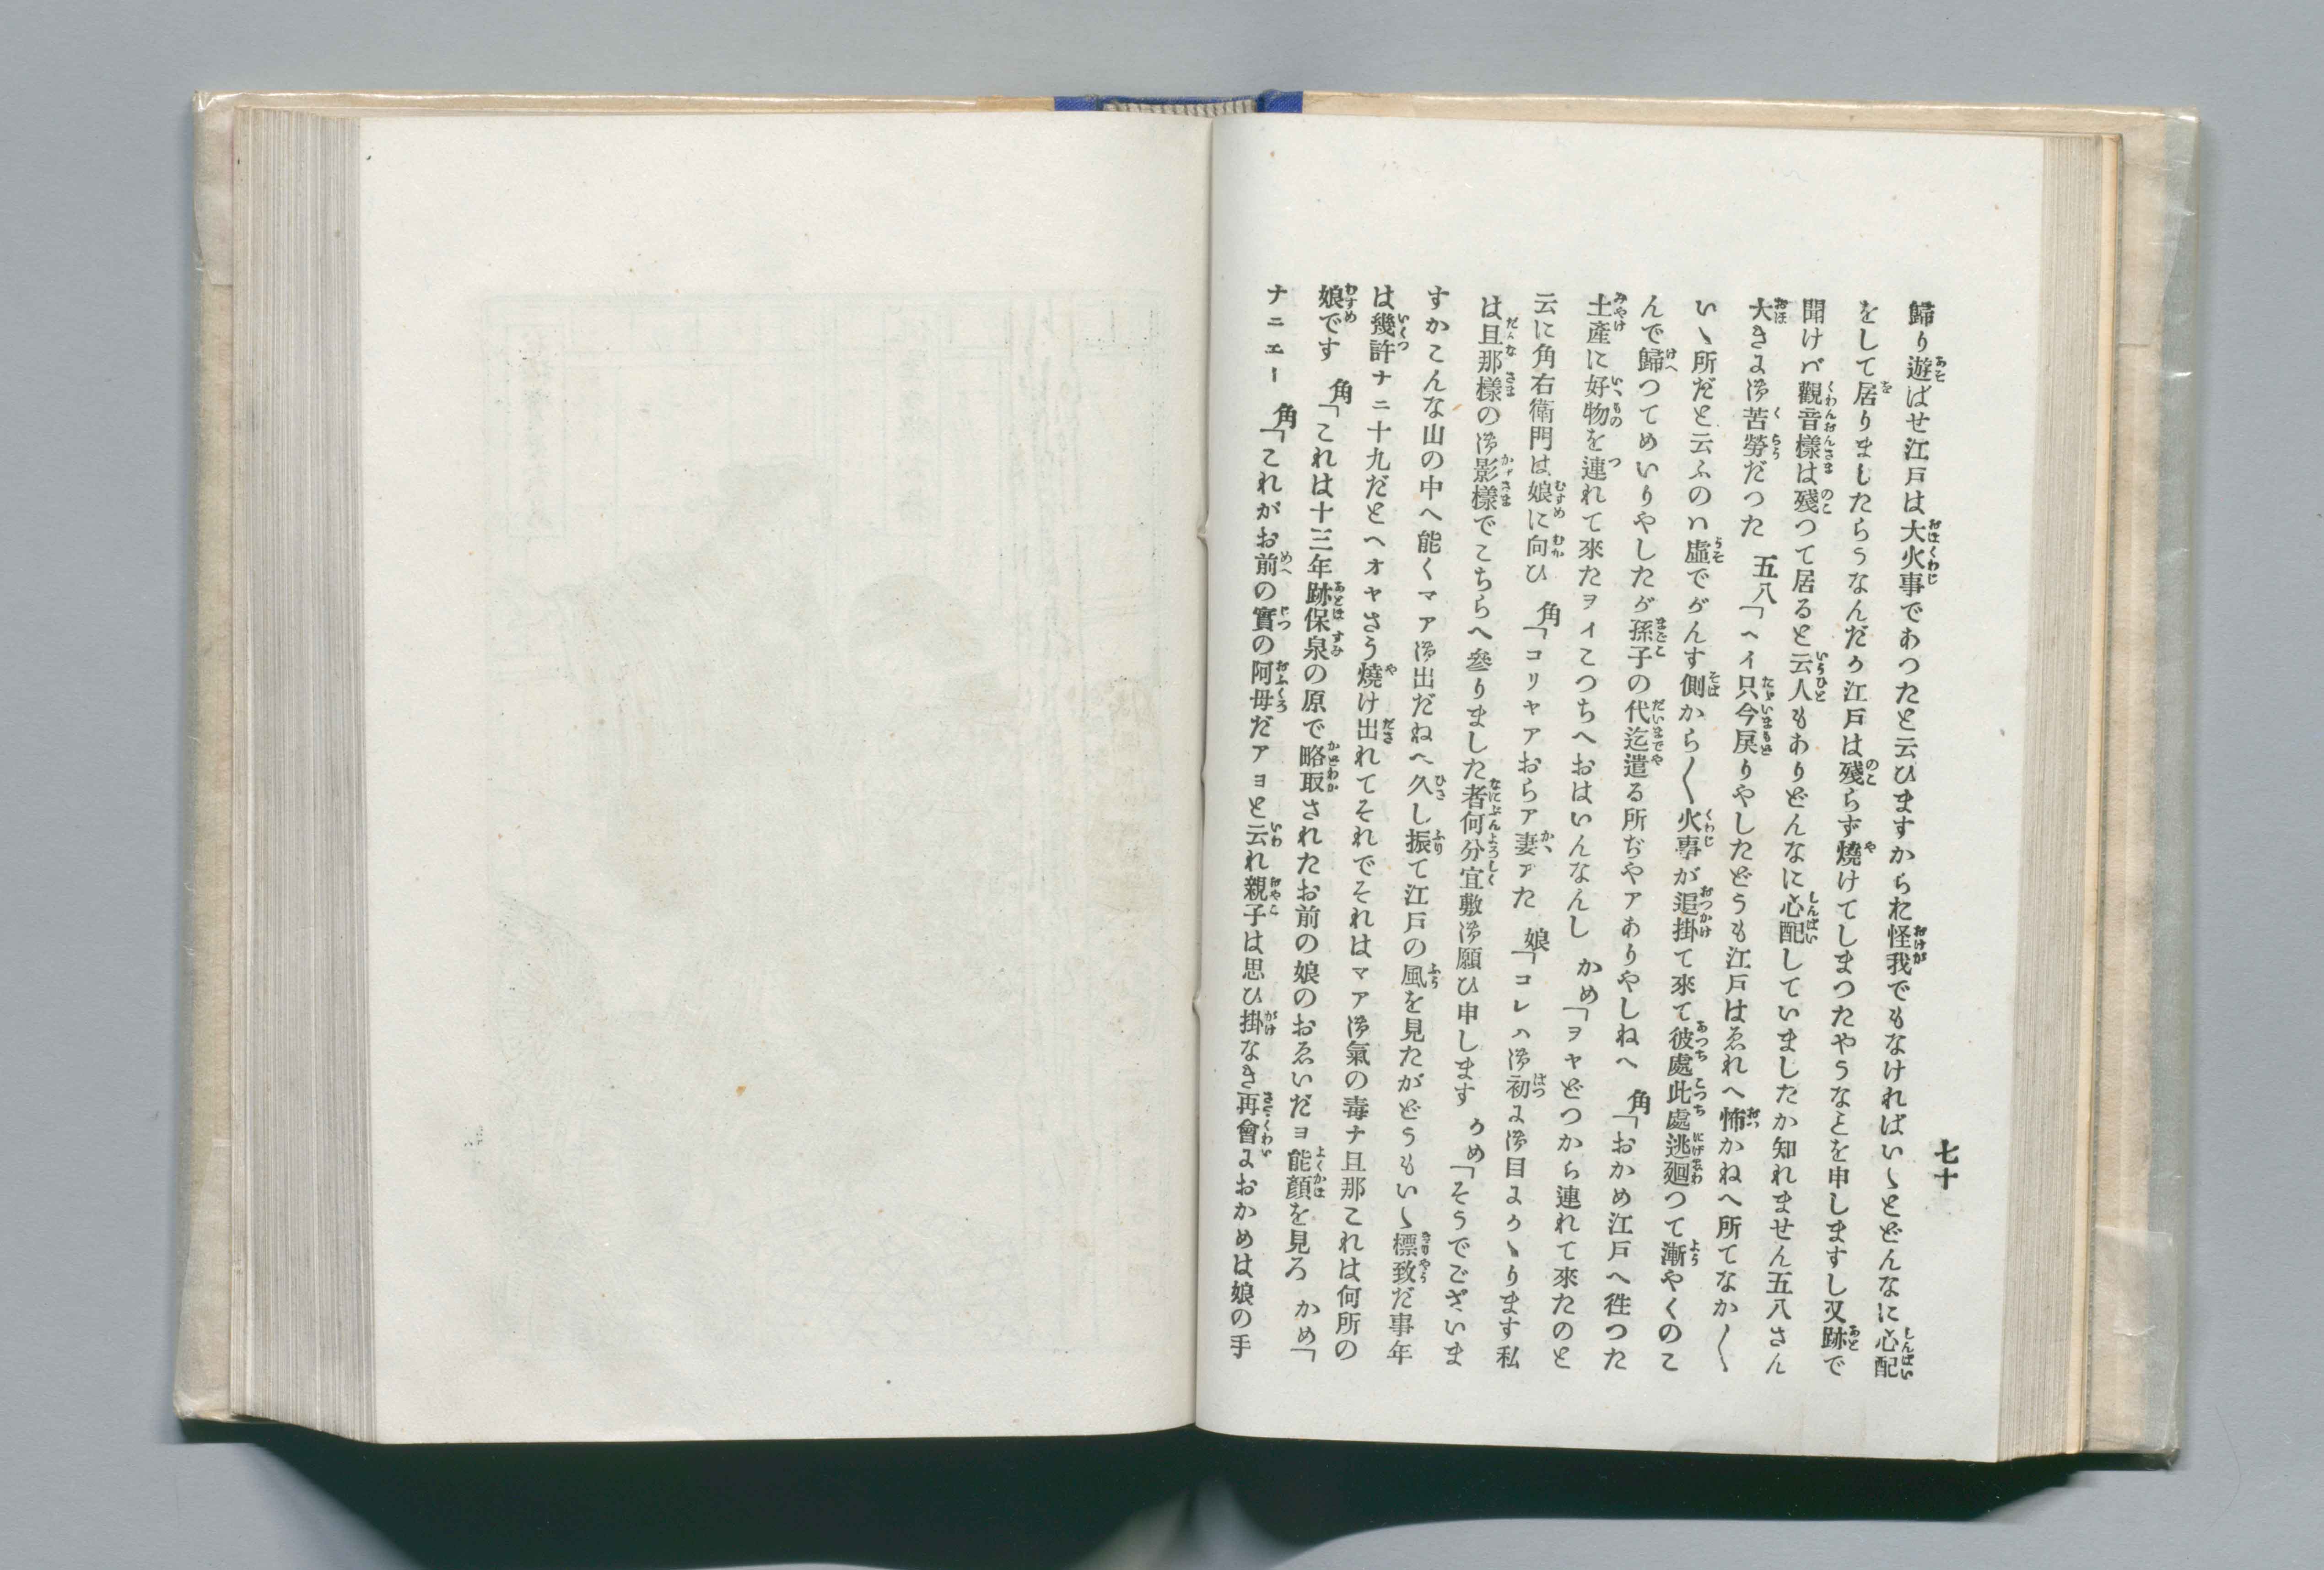 七十
歸り遊ばせ江戸は大火事であつたと云ひますからお怪我でもなければいゝとどんなに心配
をして居りましたらうなんだか江戸は殘らず燒けてしまつたやうなことを申しますし又跡で
聞けバ觀音樣は殘つて居ると云人もありどんなに心配していましたか知れません五八さん
大きに御苦勞だつた　五八「ヘイ只今戻りやしたどうも江戸はゑれへ怖かねへ所てなか〱
いゝ所だと云ふのハ虛でがんす側から〱火事が追掛て來て彼處此處逃廻つて漸やくのこ
んで歸つてめいりやしたが孫子の代迄遣る所ぢやアありやしねへ　角「おかめ江戸へ徃つた
土產に好物を連れて來たヲイこつちへおはいんなんし　かめ「ヲヤどつから連れて來たのと
云に角右衛門は娘に向ひ　角「コリヤアおらア妻アた　娘「コレハ御初に御目にかゝります私
は且那樣の御影樣でこちらへ參りました者何分宜敷御願ひ申します　かめ「そうでございま
すかこんな山の中へ能くマア御出だねへ久し振て江戸の風を見たがどうもいゝ標致だ事年
は幾許ナニ十九だとヘオヤさう燒け出れてそれでそれはマア御氣の毒ナ且那これは何所の
娘です　角「これは十三年跡保泉の原で略取されたお前の娘のおゑいだヨ能顏を見ろ　かめ「
ナニエー　角「これがお前の實の阿母だアヨと云れ親子は思ひ掛なき再會におかめは娘の手